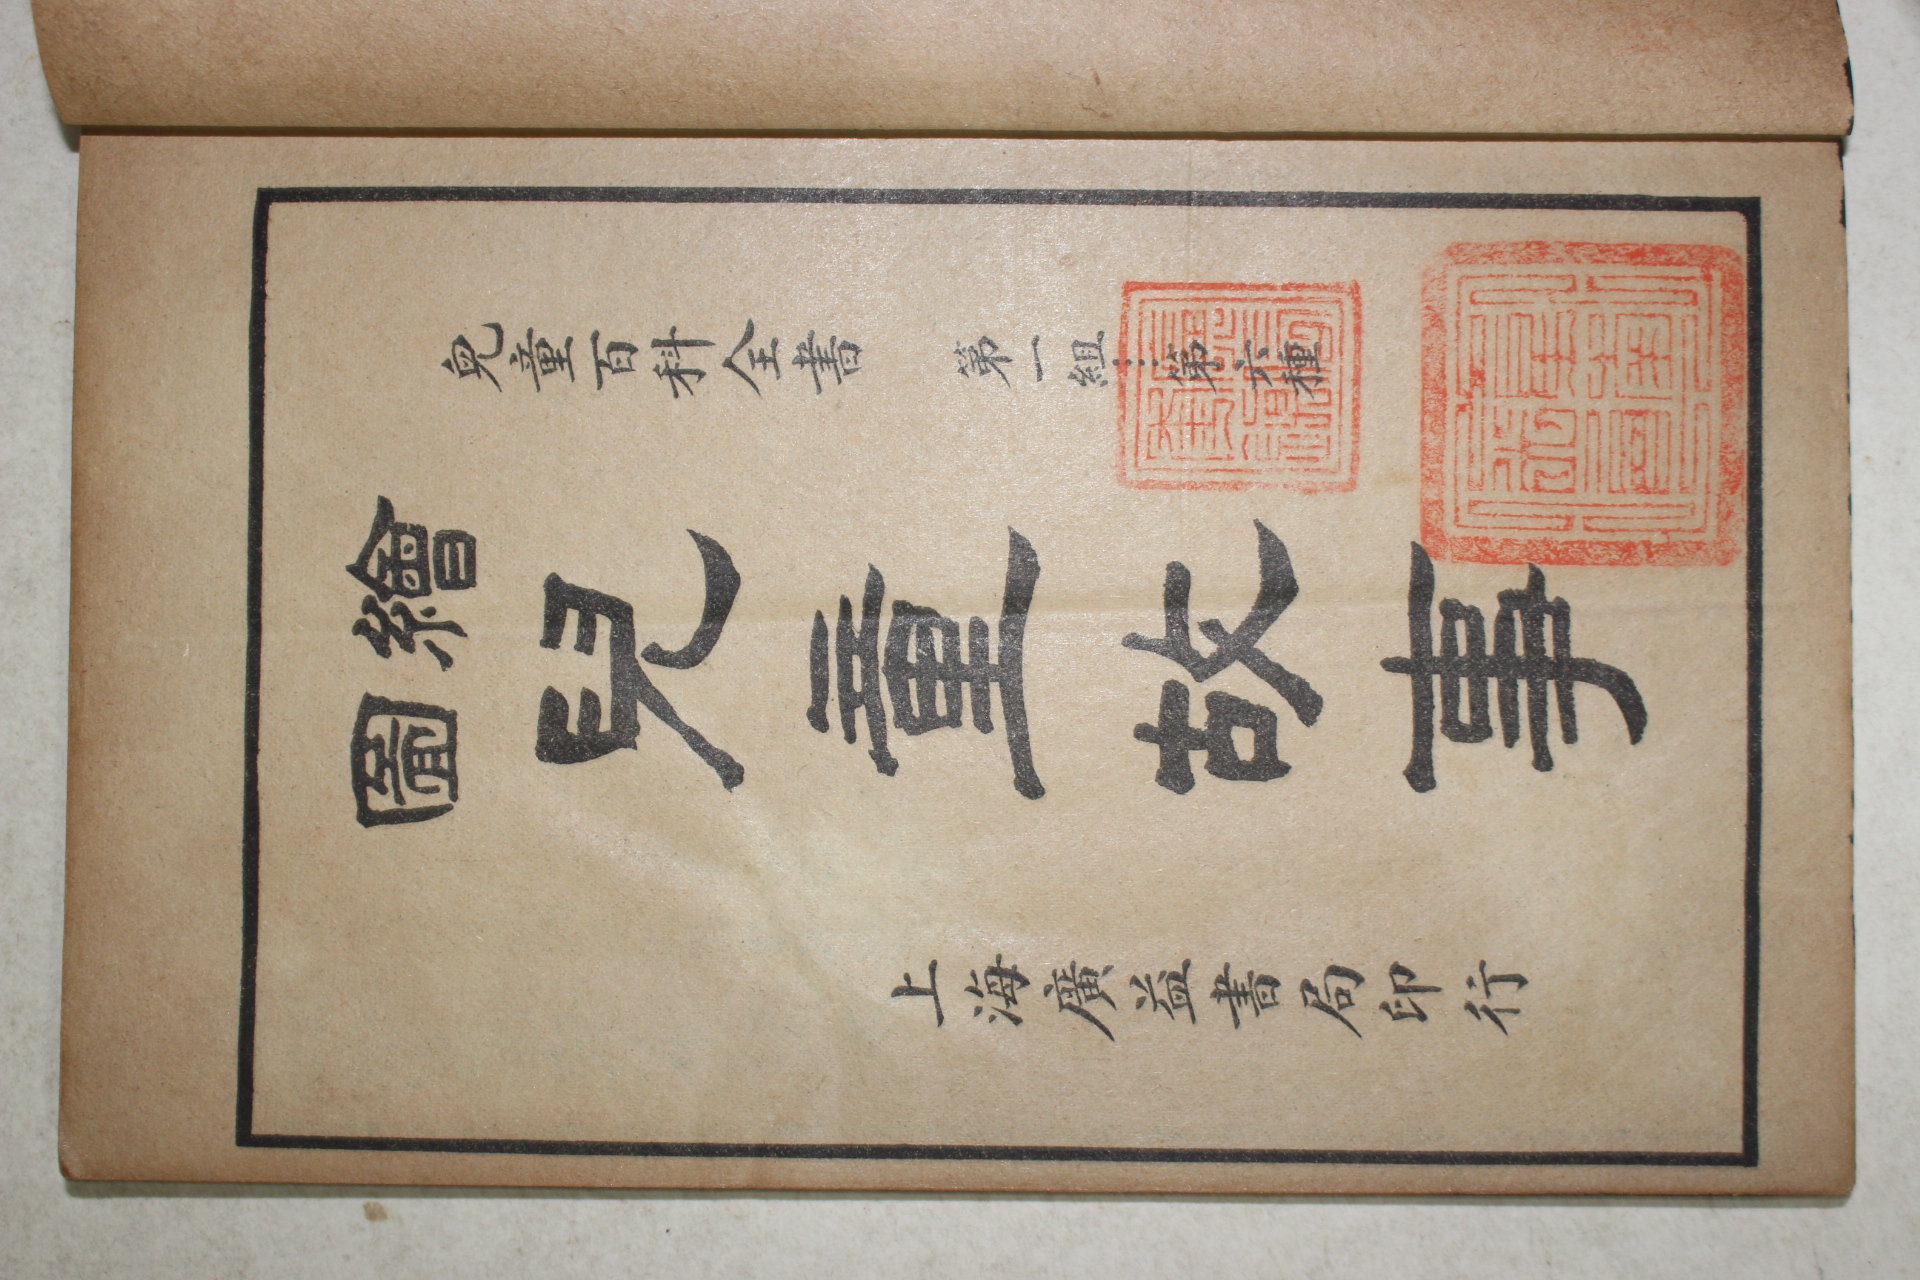 兒童百科全書　第一組……第六種
繪圖
兒童故事
上海廣益書局印行